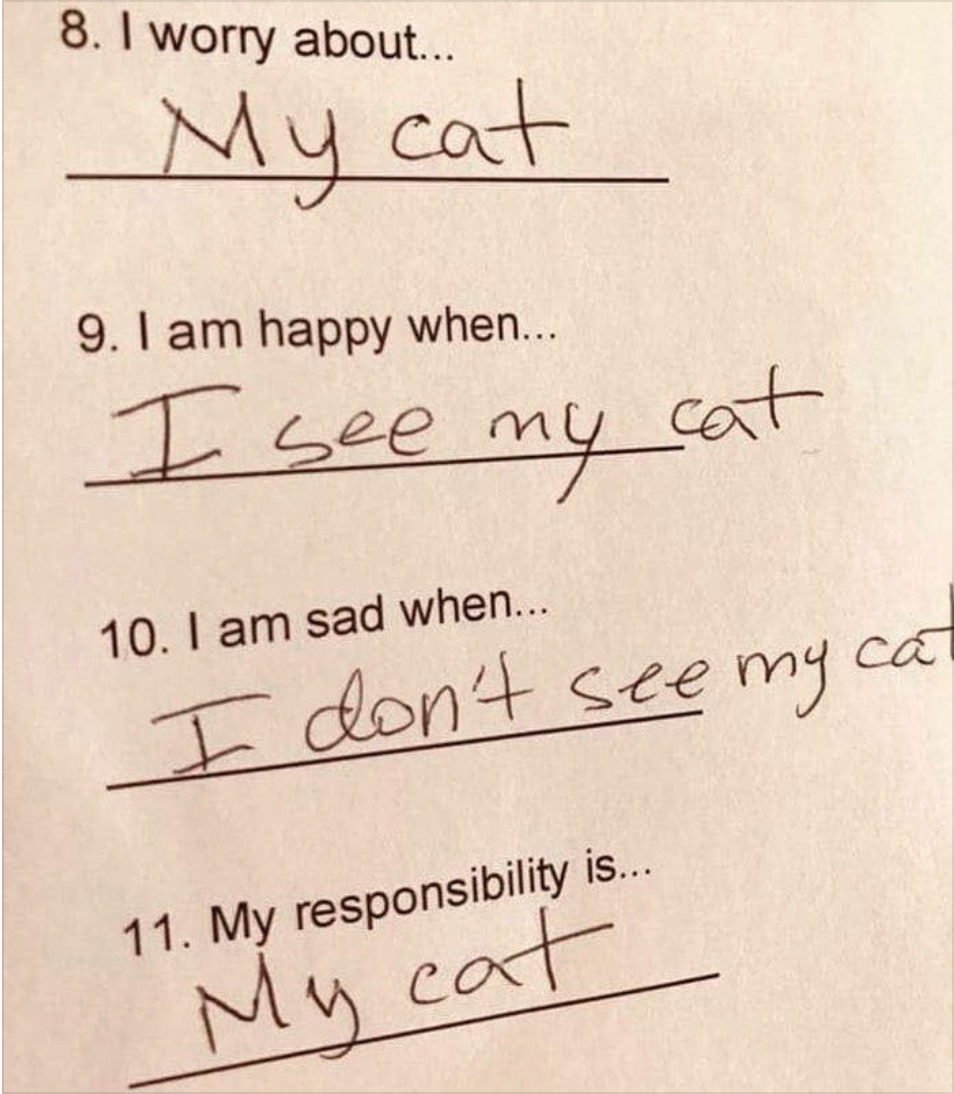 8. I worry about...
My cat
9. I am happy when...
I see my cat
10. I am sad when...
I don't see my cat
11. My responsibility is...
My cat